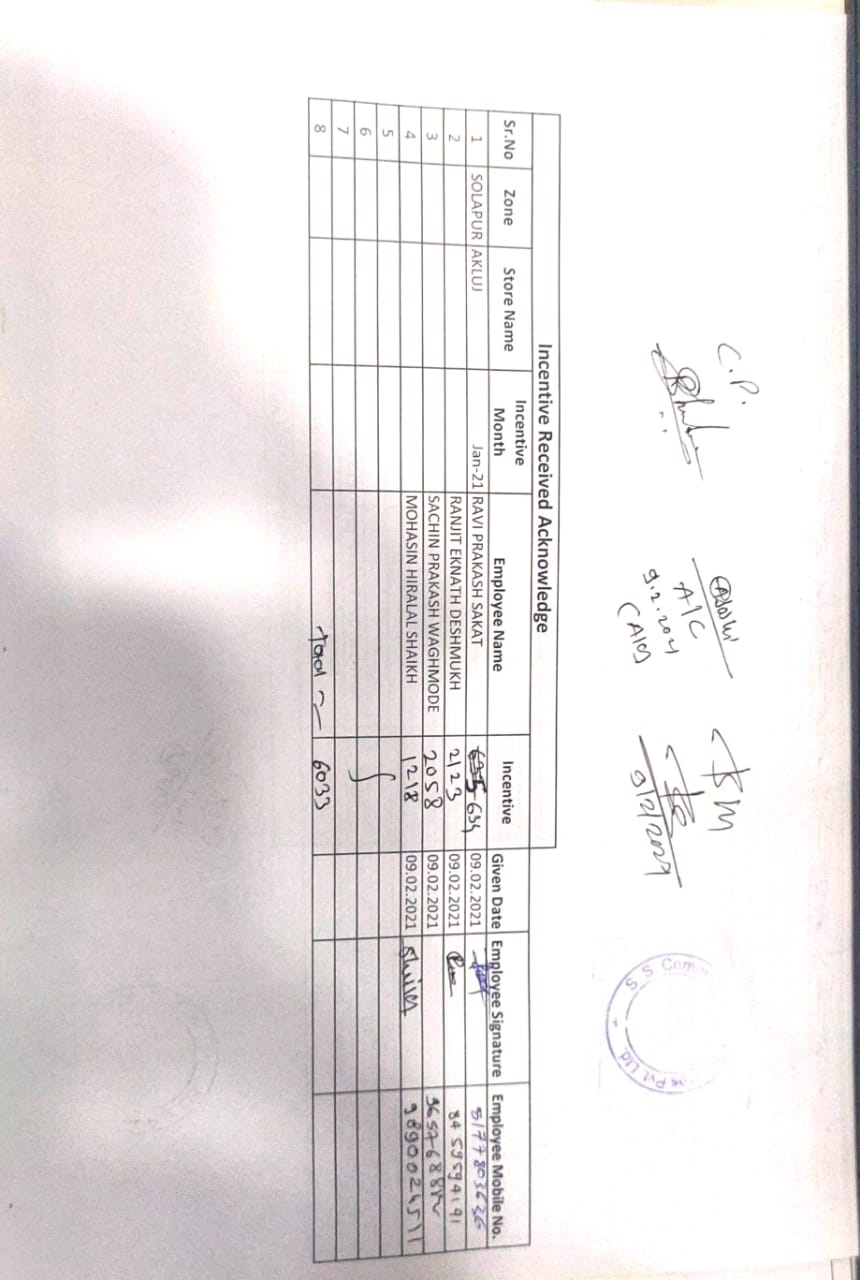 Incentive Received Acknowledge
Sr.No Zone Store Name Incentive Month Employee Name Incentive Given Date Employee Signature Employee Mobile No.
1 SOLAPUR AKLUJ Jan-21 RAVI PRAKASH SAKAT 634 09.02.2021 8177803636
2 RANJIT EKNATH DESHMUKH 2123 09.02.2021 8459594191
3 SACHIN PRAKASH WAGHMODE 2058 09.02.2021
4 MOHASIN HIRALAL SHAIKH 1218 09.02.2021 9890024511
5
6
7
8 Total 6033
C.P.
A/C
9.2.2021
BM
9/2/2021
S S Comm
Pvt Ltd.